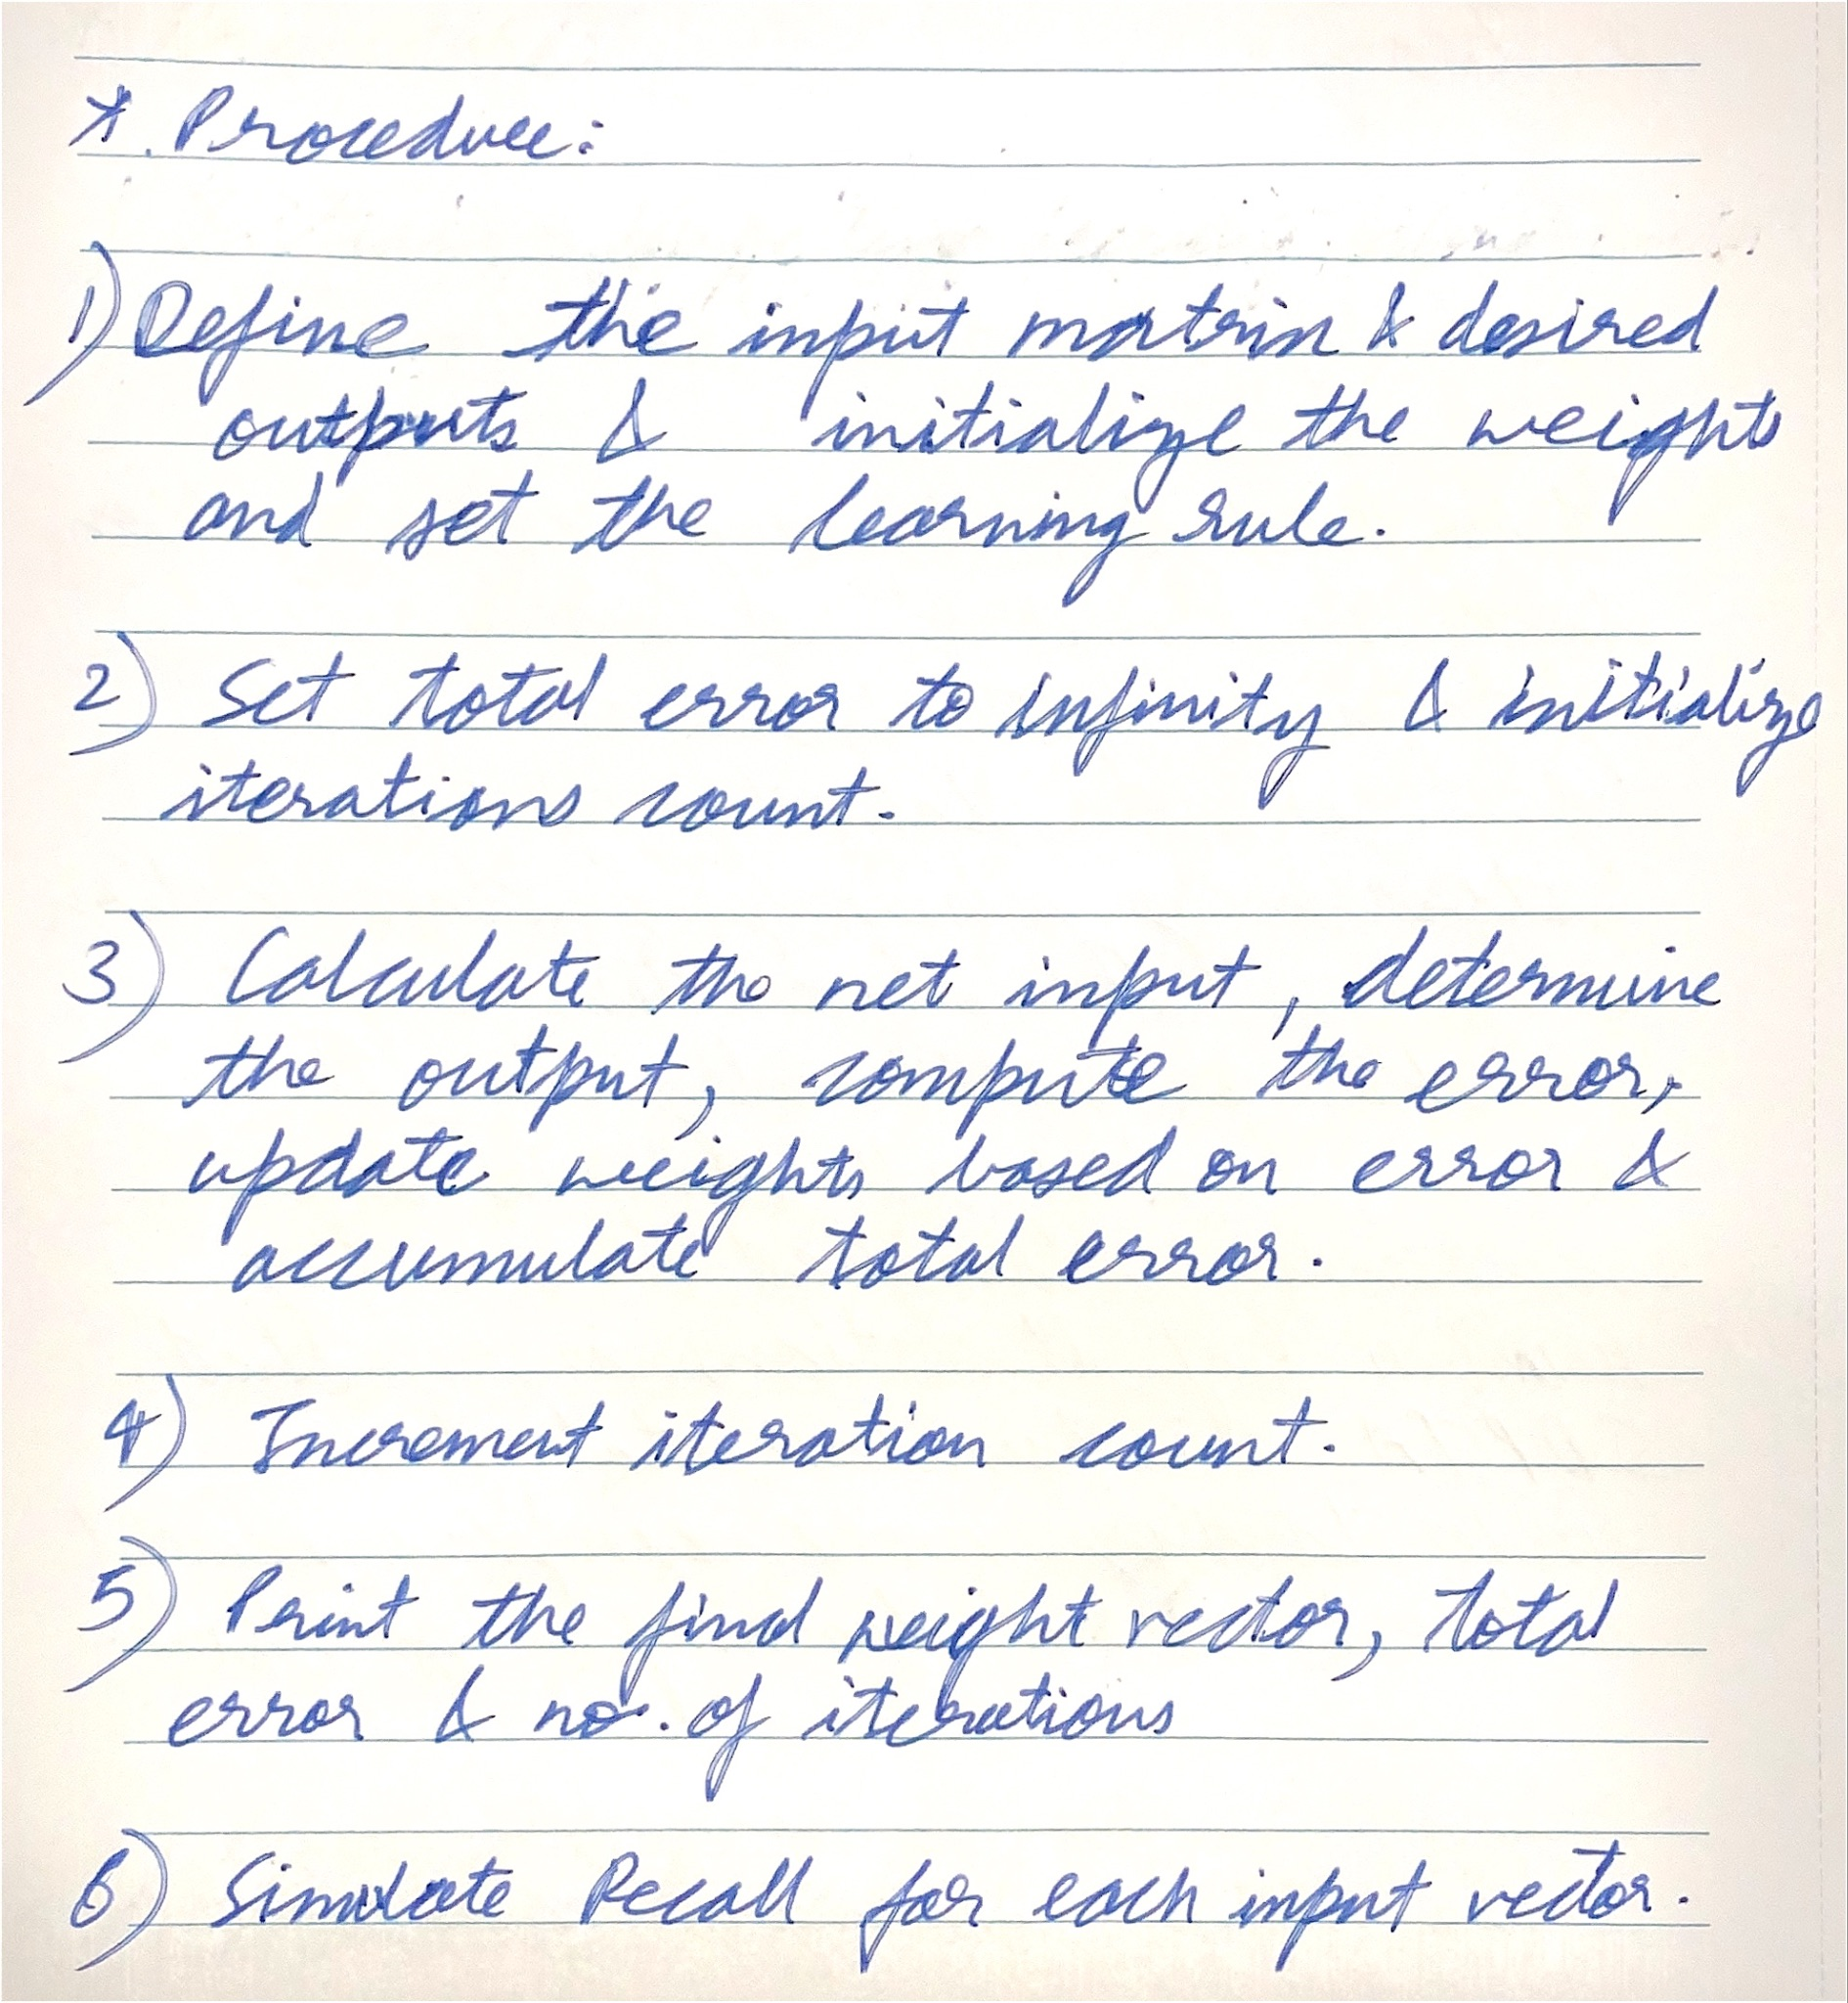 * Procedure:
1) Define the input matrix & desired
outputs & initialize the weights
and set the learning rule.
2) Set total error to infinity & initialize
iterations count.
3) Calculate the net input, determine
the output, compute the error,
update weights based on error &
accumulate total error.
4) Increment iteration count.
5) Print the final weight vector, total
error & no. of iterations
6) Simulate Recall for each input vector.